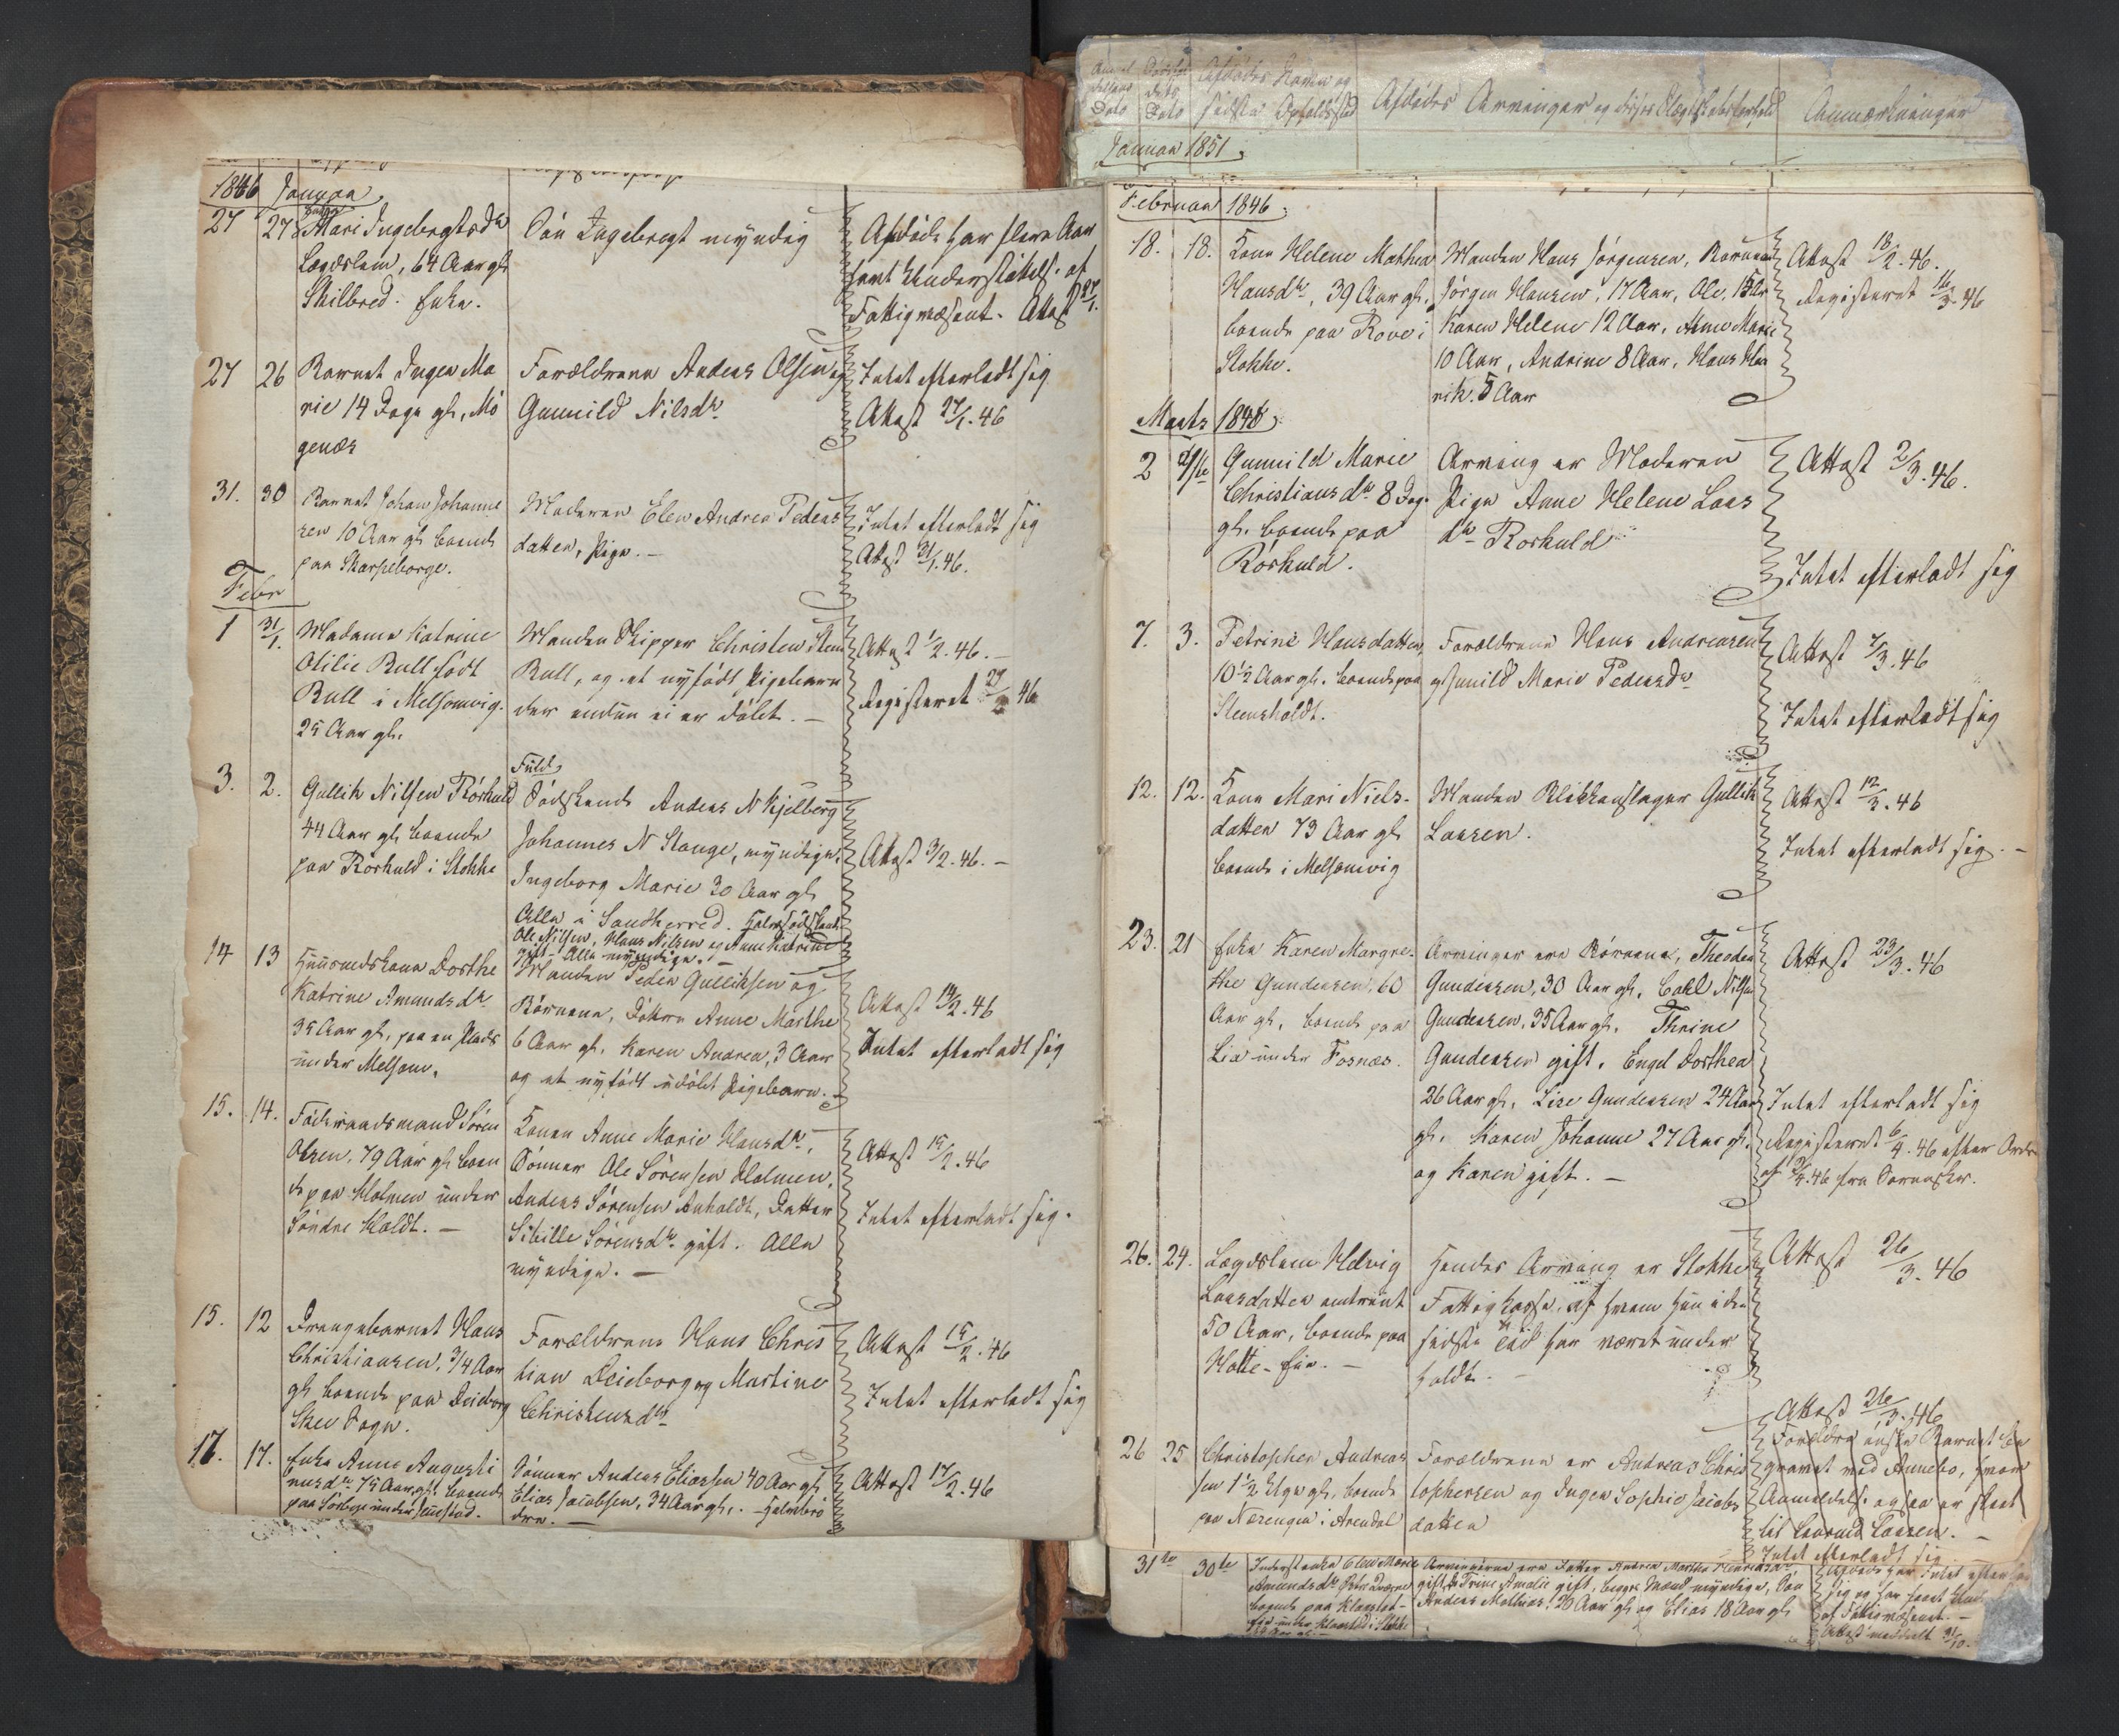 1846 Januar
27
27
Enke
Mari Ingebregtsdtr
Lægdslem, 64 Aar gl.
Skilbred. Enke.
Søn Ingebregt myndig
Afdøde har flere Aar
havt Understøttelse af
Fattigvæsent. Attest 27/1.
27
26
Barnet Ingen Ma
rie 14 Dage gl., Mø
genæs
Forældrene Anders Olsen og
Gunnild Nilsdtr
Intet efterladt sig
Attest 27/1. 46
31.
30
Barnet Johan Johanne
sen 10 Aar gl. boende
paa Skarpeborge.
Moderen Elen Andrea Peders
datter, Pige. —
Intet efterladt sig
Attest 31/1. 46.
Febr
1
31/1.
Madame Katrine
Otilie Bull født
Bull i Melsomvig.
25 Aar gl.
Manden Skipper Christen Steen
Bull, og et nyfødt Pigebarn
der endnu ei er døbt. —
Attest 1/2. 46. —
Registeret 27/2 46
3.
2.
Gullik Nilsen Rørkuld
44 Aar gl. boende
paa Rørkuld i Stokke
Fuld
Sødskende Anders N Kjelberg
Johannes N Stange, myndige.
Ingeborg Marie 30 Aar gl.
Alle i Sandherred. Halvsødskende
Ole Nilsen, Hans Nilsen og Anne Katrine
gift - Alle myndige.
Attest 3/2. 46. —
14
13
Huusmandskone Dorthe
Katrine Amundsdtr.
35 Aar gl., paa en Plads
under Melsom.
Manden Peder Gulliksen og
Børnene, Døttre Anne Marthe
6 Aar gl. Karen Andrea, 3 Aar
og et nyfødt udøbt Pigebarn. —
Attest 14/2. 46
Intet efterladt sig
15.
14.
Føderaadsmand Søren
Olsen, 79 Aar gl. boen
de paa Holmen under
Søndre Holdt. —
Konen Anne Marie Hansdtr,
Sønner Ole Sørensen Holmen,
Anders Sørensen Anholdt, Datter
Sibille Sørensdtr gift. Alle
myndige. —
Attest 15/2. 46
Intet efterladt sig.
15.
12
Drengebarnet Hans
Christiansen, 3/4 Aar
gl. boende paa Deieborg
Skee Sogn.
Forældrene Hans Chris
tian Deieborg og Martine
Christensdtr
Attest 15/2. 46
Intet efterladt sig
17.
17.
Enke Anne Augusti
nusdtr 75 Aar gl. boende
Sønner Anders Eliassen 40 Aar gl.
Elias Jacobsen, 34 Aar gl. - Halvbrø
dre. —
Attest 17/2. 46
Anmel
delsens
Dato
Dødsfal
dets
Dato
Afdødes Navn og
sidste Opholdssted
Afdødes Arvinger og disses Slægtskabsforhold
Anmærkninger
Januar 1851.
Februar 1846.
18.
18.
Kone Helene Mathea
Hansdtr, 39 Aar gl.
boende paa Rove i
Stokke.
Manden Hans Jørgensen, Børnene
Jørgen Hansen, 17 Aar, Ole, 15 Ar
Karen Helene 12 Aar, Anne Marie
10 Aar, Andrine 8 Aar, Hans Hen
rik. 5 Aar
Attest 18/2. 46.
Registeret 16/3. 46
Marts 1846
2
Gunnild Marie
Christiansdtr 8 Dag.
gl. boende paa
Rørkuld.
Arving er Moderen
Pige Anne Helene Lars
dtr Rorkuld
Attest 2/3. 46.
Intet efterladt sig
7.
3.
Petrine Hansdatter,
10 1/2 Aar gl. boende paa
Steensholdt.
Forældrene Hans Andreasen
og Gunild Marie Pedersdtr
Attest 7/3. 46
Intet efterladt sig
12.
12.
Kone Mari Niels-
datter 73 Aar gl.
boende i Melsomvig
Manden Blikkenslager Gullik
Larsen.
Attest 12/3. 46
Intet efterladt sig. —
23.
21
Enke Karen Margre-
the Gundersen, 60
Aar gl., boende paa
Lia under Fosnæs.
Arvinger ere Børnene, Theodor
Gundersen, 30 Aar gl., Carl Nilsen
Gundersen, 35 Aar gl. Thrine
Gundersen gift. Engel Dorthea
26 Aar gl., Lise Gundersen 24 Aar
gl. Karen Johanne 27 Aar gl.
og Karen gift. —
Attest 23/3. 46
Intet efterladt sig
Registeret 6/4. 46 efter Ordre
af 2/4. 46 fra Sorenskr.
26.
24.
Lægdslem Hedvig
Larsdatter omtrent
50 Aar, boende paa
Hotte-Eie. —
Hendes Arving er Stokke
Fattigkasse, af hvem hun i den
sidste Tid har været under
holdt. —
Attest 26/3. 46
26
25
Christopher Andreas
sen 1 1/2 Uge gl., boende
paa Nærengen i Arendal
Forældrene er Andreas Chris
tophersen og Inger Sophie Jacobs
datter
Attest 26/3. 46
Forældre ønske Barnet be
gravet ved Annebo, hvor
Anmeldelse ogsaa er skeet
til Leonard Larsen. —
Intet efterladt sig
31te
30te
Inderstenke Elen Marie
boende paa Klaastad-
Eie under Klaastad i Stokke
Arvingerne ere Datter Andrea Marthe Henriksdtr
gift, Trine Amalie gift, begges Mænd myndige, Søn
Anders Mathias, 20 Aar gl. og Elias 18 Aar gl.
Afdøde har Intet efterladt
sig og har havt Under
af Fattigvæsenet. —
Attest meddeelt